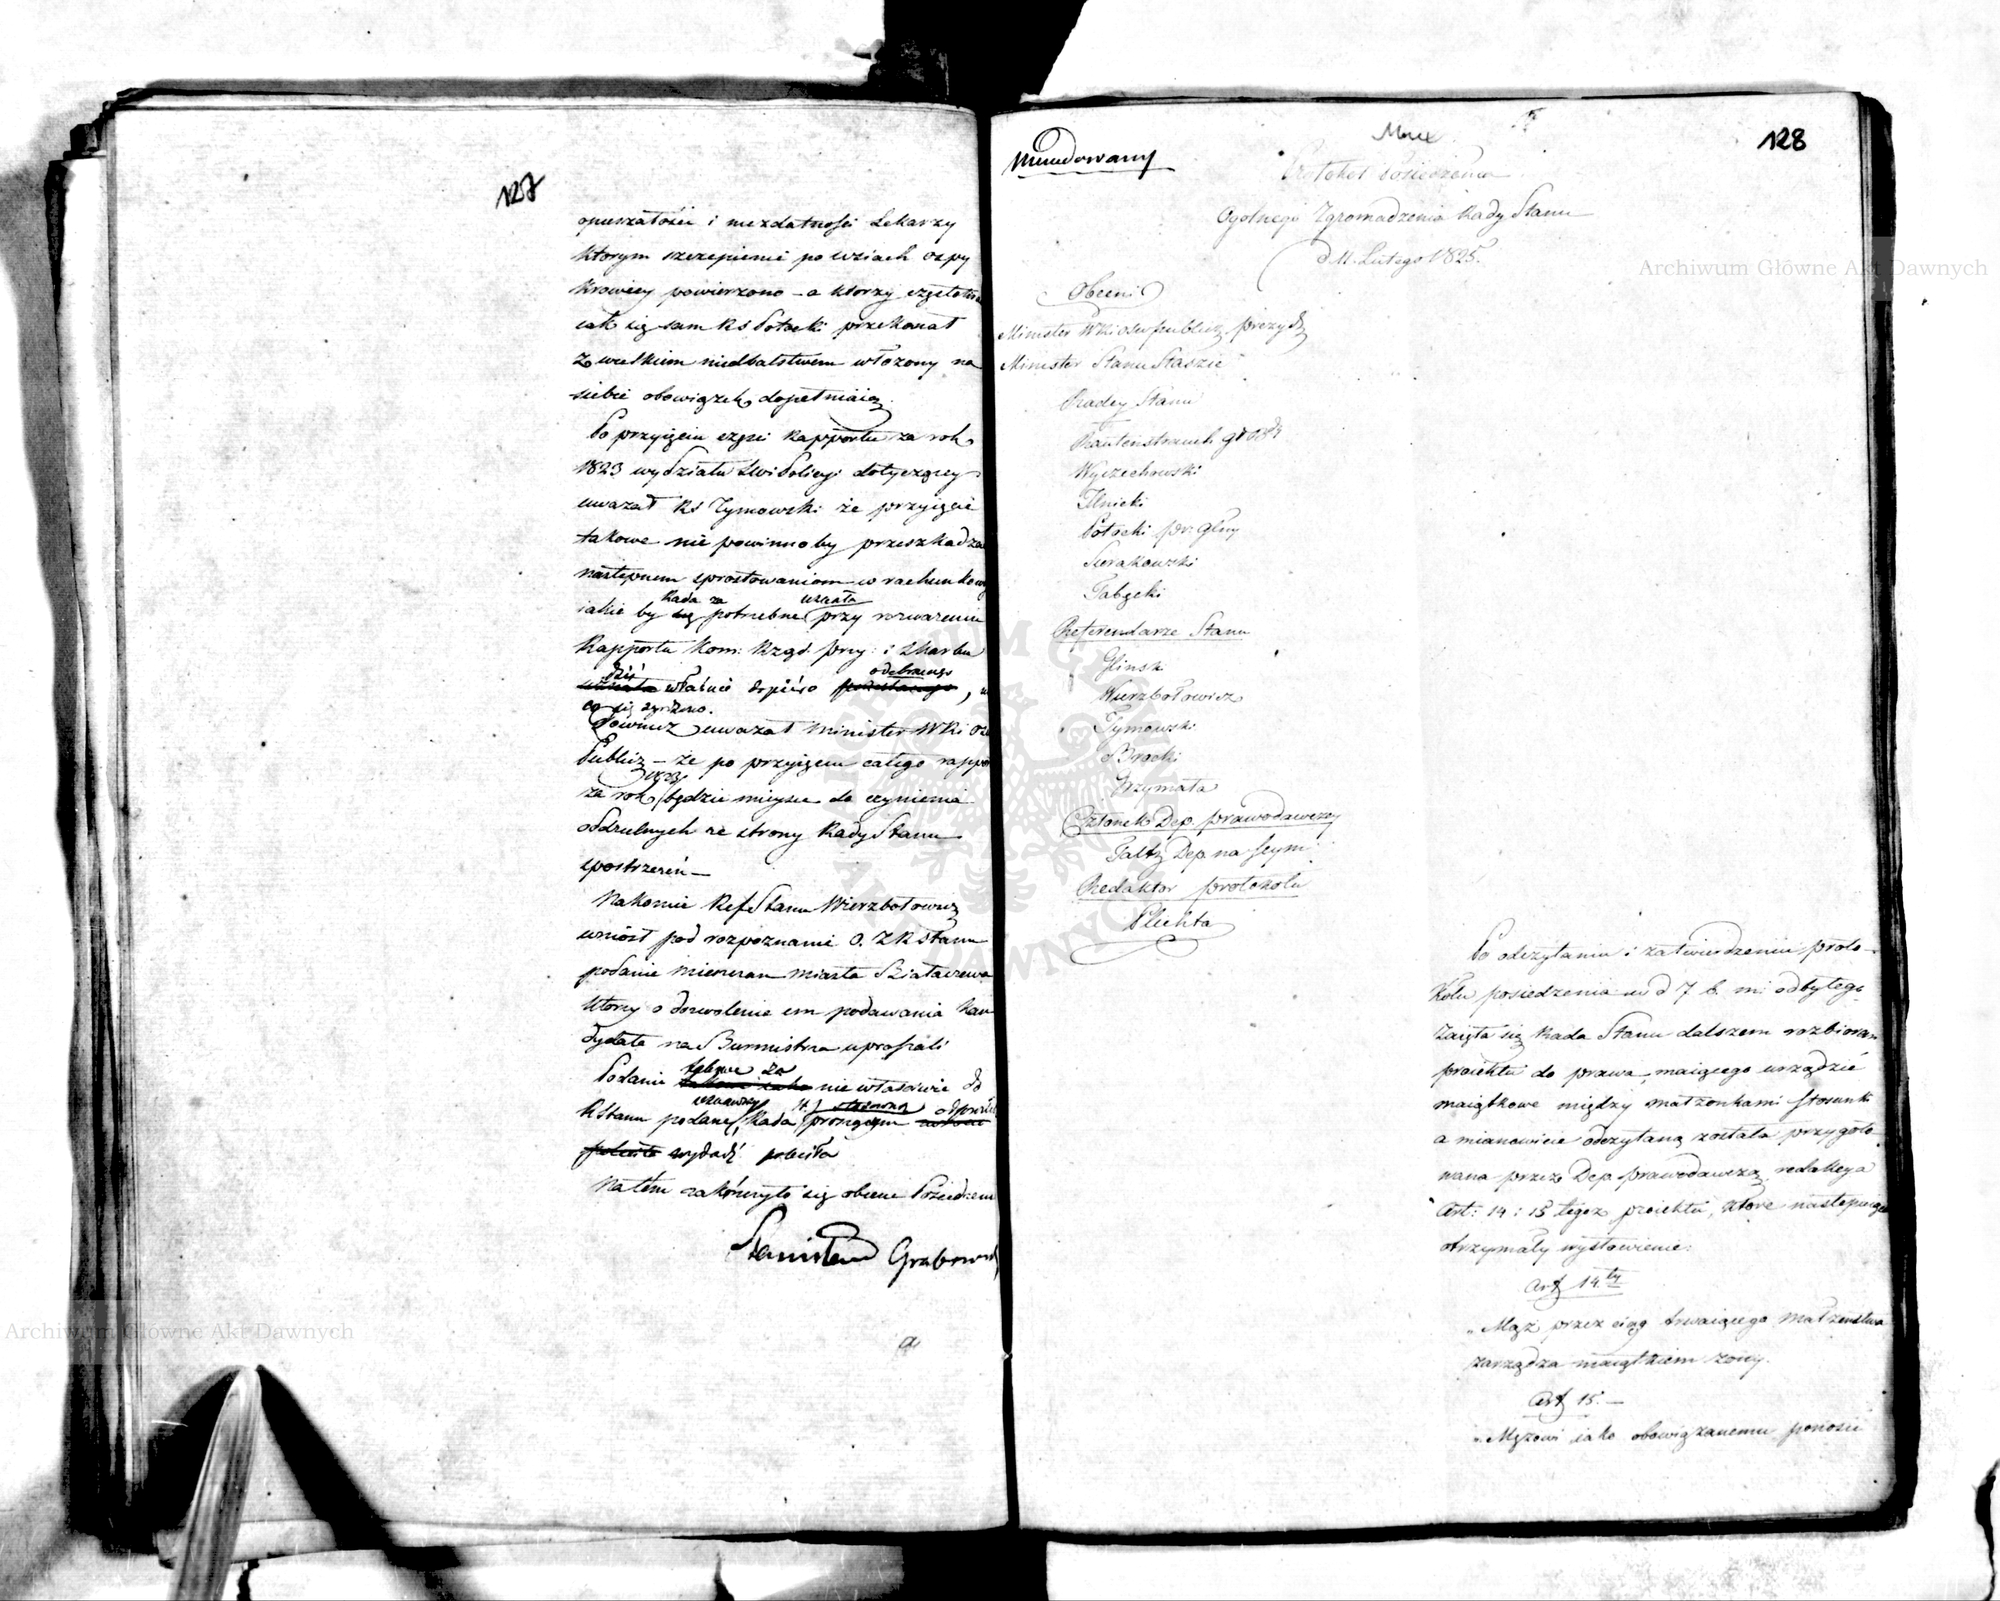 127
opuszałości i niezdatności Lekarzy
którym szczepienie po wsiach ospy
krowiey powierzono – a którzy częstokro
iak się sam RS Potocki przekonał
z wielkiem niedbalstwem włożony na
siebie obowiązek dopełniaią.
Po przyięciu części Rapportu za rok
1823 wydziału Policyi dotyczącey
uważał RS Tymowski że przyięcie
takowe nie powinnoby przeszkadza
następnem sprostowaniom w rachunkow
Rada za uznała
iakie by się potrzebne przy rozważeniu
Rapportu Kom: Rząd. Przy: i Skarbu
dziś odebranego
właśnie dopiéro , n
co się zgodzono.
Również uważał Minister WRi Oś
Publicz – że po przyięciu całego rappo
1823
za rok będzie mieysce do czynienia
oddzielnych ze strony Rady Stanu
spostrzeżeń –
Nakoniec Ref Stanu Wierzbołowicz
wniósł pod rozpoznanie O. Z R Stanu
podanie mieszczan miasta Białaczewa
którzy o dozwolenie im podawania kan
dydata na Burmistrza upraszali
takowe za
Podanie nie właściwie do
uznawszy stosowną odpowiedź
R Stanu podane, Rada proszącym
wydadź poleciła
Na tém zakończyło się obecne Posiedzenie
Stanisław Grabowski
128
Mundowany
Protokół Posiedzenia
Ogólnego Zgromadzenia Rady Stanu
d 11. Lutego 1825.
Obecni
Minister WRi Ośw publicz. prezyd
Minister Stanu Staszic
Radcy Stanu
Rautenstrauch
Wyczechowski
Ilnicki
Potocki pr: głny
Sierakowski
Gliński
Referendarze Stanu
Wierzbołowicz
Tymowski
Brocki
Grzymała
Członek Dep. prawodawczey
Faltz Dep. na Seym
Redaktor protokołu
Plichta
Po odczytaniu i zatwierdzeniu proto-
kołu posiedzenia w d 7 b. m: odbytego
Zaięła się Rada Stanu dalszem rozbiorem
proiektu do prawa, maiącego urządzić
maiątkowe między małżonkami stosunk
a mianowicie odczytaną została przygoto
wana przez Dep. prawodawczą redakcya
Art: 14 i 15 tegoż proiektu, które następuiące
otrzymały wysłowienie:
Art 14.ty
„Mąż przez ciąg trwaiącego małżeństwa
zarządza maiątkiem żony.
Art 15. –
„Mężowi iako obowiązanemu ponosić
Archiwum Główne Akt Dawnych
Archiwum Główne Akt Dawnych